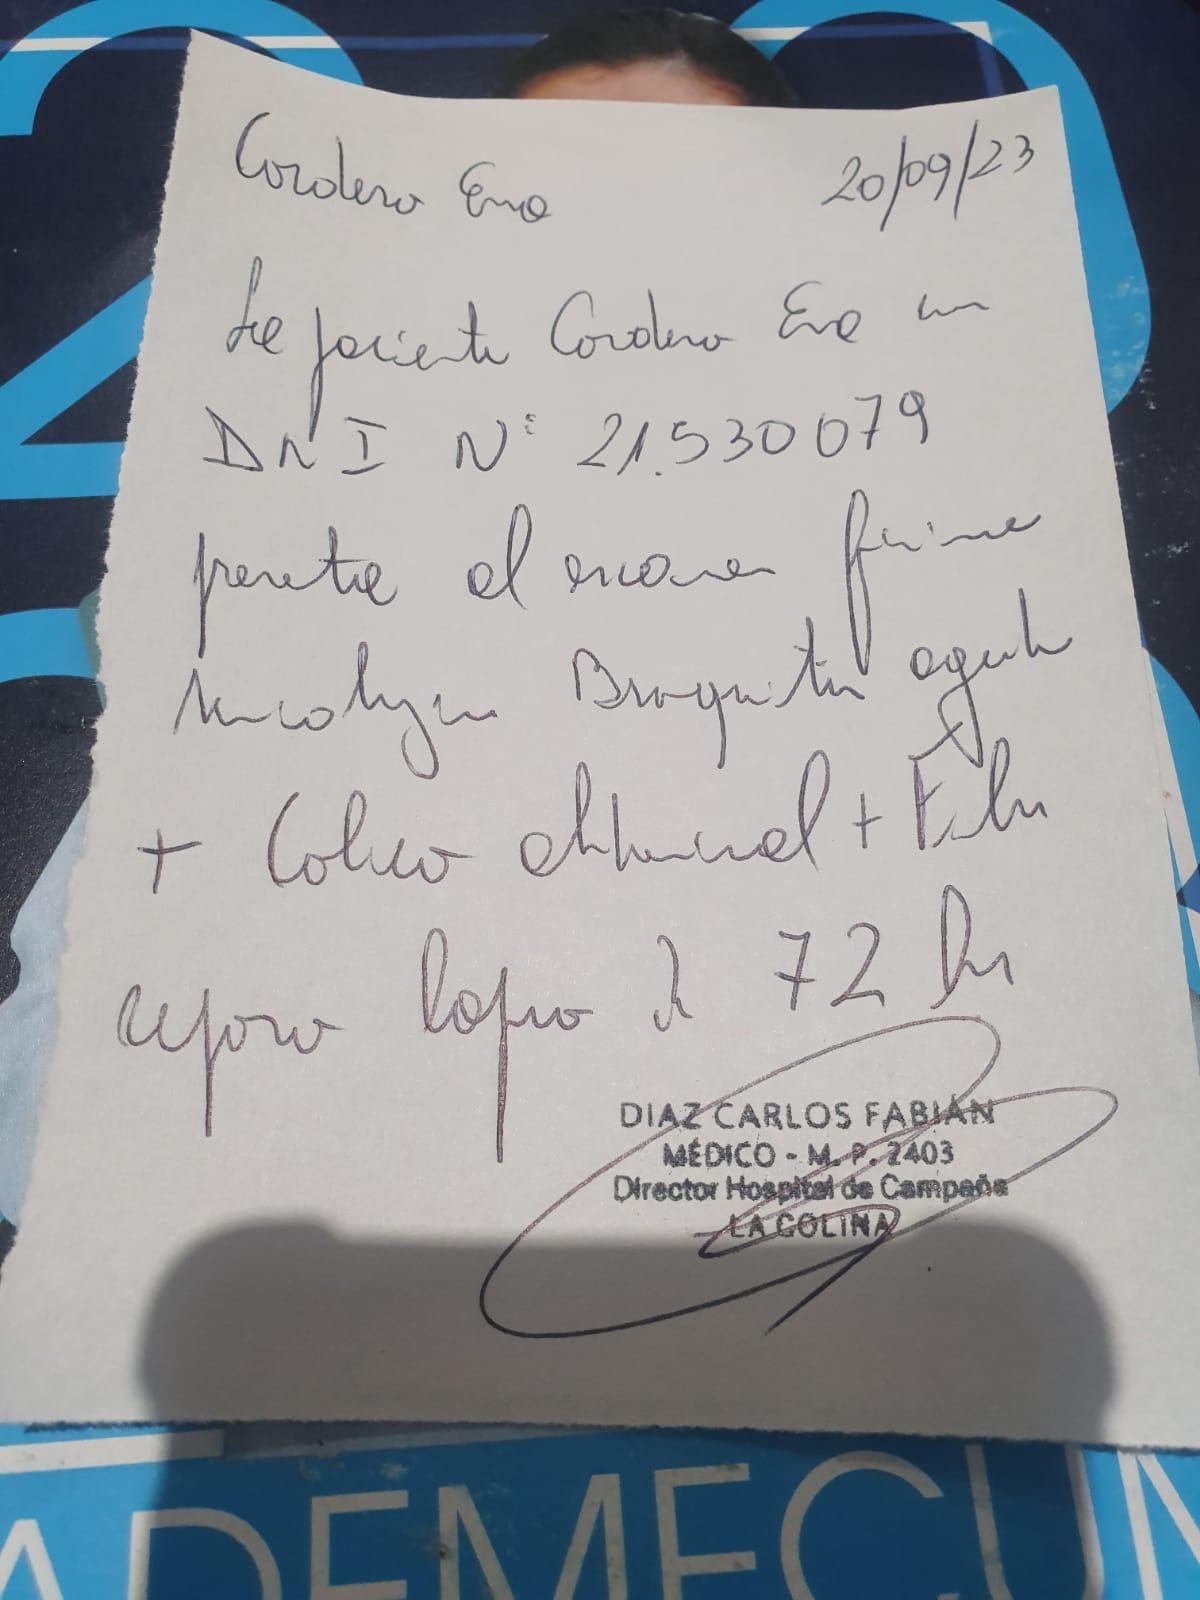 Cordero Eva 20/09/23
La paciente Cordero Eva con
DNI Nº 21.530079
presenta al examen físico
Bronquitis aguda
+ Cólico abdominal + Fiebre
reposo lapso de 72 hs
DIAZ CARLOS FABIÁN
MÉDICO - M. P. 2403
Director Hospital de Campaña
LA COLINA
ADEMECUM